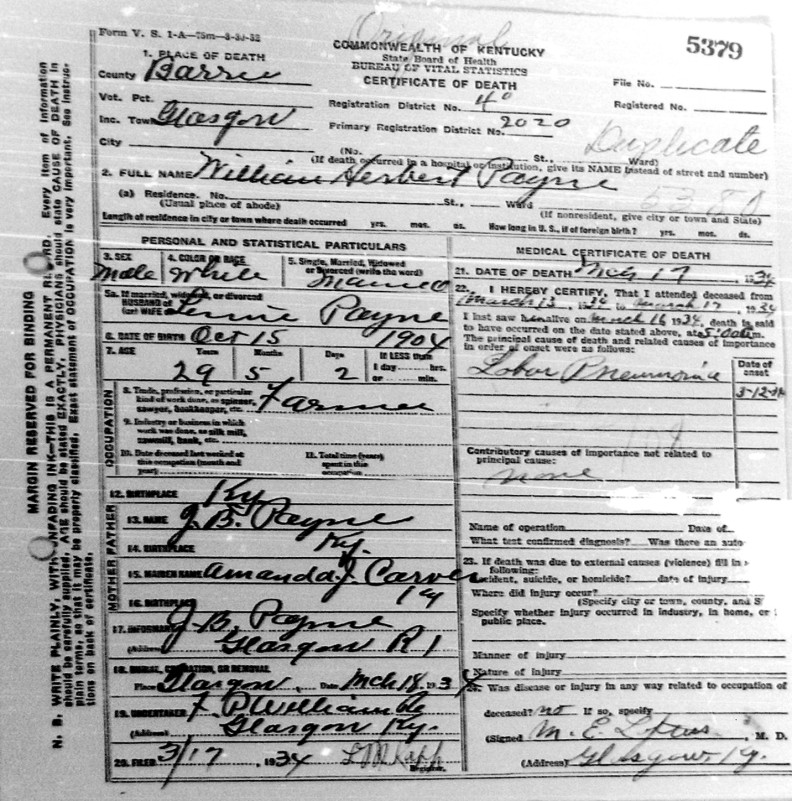 Original
Form V. S. 1-A—75m—3-30-32
COMMONWEALTH OF KENTUCKY
State Board of Health
BUREAU OF VITAL STATISTICS
CERTIFICATE OF DEATH
5379
1. PLACE OF DEATH
County Barren
File No.
Vot. Pct.
Registration District No. 40
Registered No.
Inc. Town Glasgow
Primary Registration District No. 2020
Duplicate
City
(No. St., Ward)
(If death occurred in a hospital or institution, give its NAME instead of street and number)
2. FULL NAME William Herbert Payne
5380
(a) Residence. No. St., Ward
(Usual place of abode) (If nonresident, give city or town and State)
Length of residence in city or town where death occurred yrs. mos. ds. How long in U. S., if of foreign birth? yrs. mos. ds.
PERSONAL AND STATISTICAL PARTICULARS
3. SEX 4. COLOR OR RACE 5. Single, Married, Widowed
or Divorced (write the word)
Male White Married
5a. If married, widowed, or divorced
HUSBAND of
(or) WIFE Payne
6. DATE OF BIRTH Oct 15 1904
7. AGE Years Months Days If LESS than
1 day hrs.
or min.
29 5 2
OCCUPATION
8. Trade, profession, or particular
kind of work done, as spinner,
sawyer, bookkeeper, etc. Farmer
9. Industry or business in which
work was done, as silk mill,
sawmill, bank, etc.
10. Date deceased last worked at
this occupation (month and
year)
11. Total time (years)
spent in this
occupation
12. BIRTHPLACE Ky
FATHER
13. NAME J. B. Payne
14. BIRTHPLACE Ky.
MOTHER
15. MAIDEN NAME Amanda J. Carver
16. BIRTHPLACE Ky
17. INFORMANT J. B. Payne
(Address) Glasgow R 1
18. BURIAL, CREMATION, OR REMOVAL
Place Glasgow, Date Mch 18, 1934
19. UNDERTAKER F. P.
(Address) Glasgow Ky.
20. FILED 3/17 1934
Registrar.
MEDICAL CERTIFICATE OF DEATH
21. DATE OF DEATH 17 1934
22. I HEREBY CERTIFY, That I attended deceased from
March 13, 1934 to March 17, 1934
I last saw him alive on March 16 1934, death is said
to have occurred on the date stated above, at 5:00 a m.
The principal cause of death and related causes of importance
in order of onset were as follows:
Date of
onset
Lobar Pneumonia
3-12-34
108
Contributory causes of importance not related to
principal cause:
none
Name of operation Date of
What test confirmed diagnosis? Was there an auto
23. If death was due to external causes (violence) fill in
following:
Accident, suicide, or homicide? date of injury
Where did injury occur?
(Specify city or town, county, and S
Specify whether injury occurred in industry, in home, or
public place.
Manner of injury
Nature of injury
24. Was disease or injury in any way related to occupation of
deceased? no If so, specify
(Signed M. E. M. D.
(Address) Glasgow, Ky.
MARGIN RESERVED FOR BINDING
N. B. WRITE PLAINLY, WITH UNFADING INK—THIS IS A PERMANENT RECORD. Every item of information
should be carefully supplied. AGE should be stated EXACTLY. PHYSICIANS should state CAUSE OF DEATH in
plain terms, so that it may be properly classified. Exact statement of OCCUPATION is very important. See instruc-
tions on back of certificate.